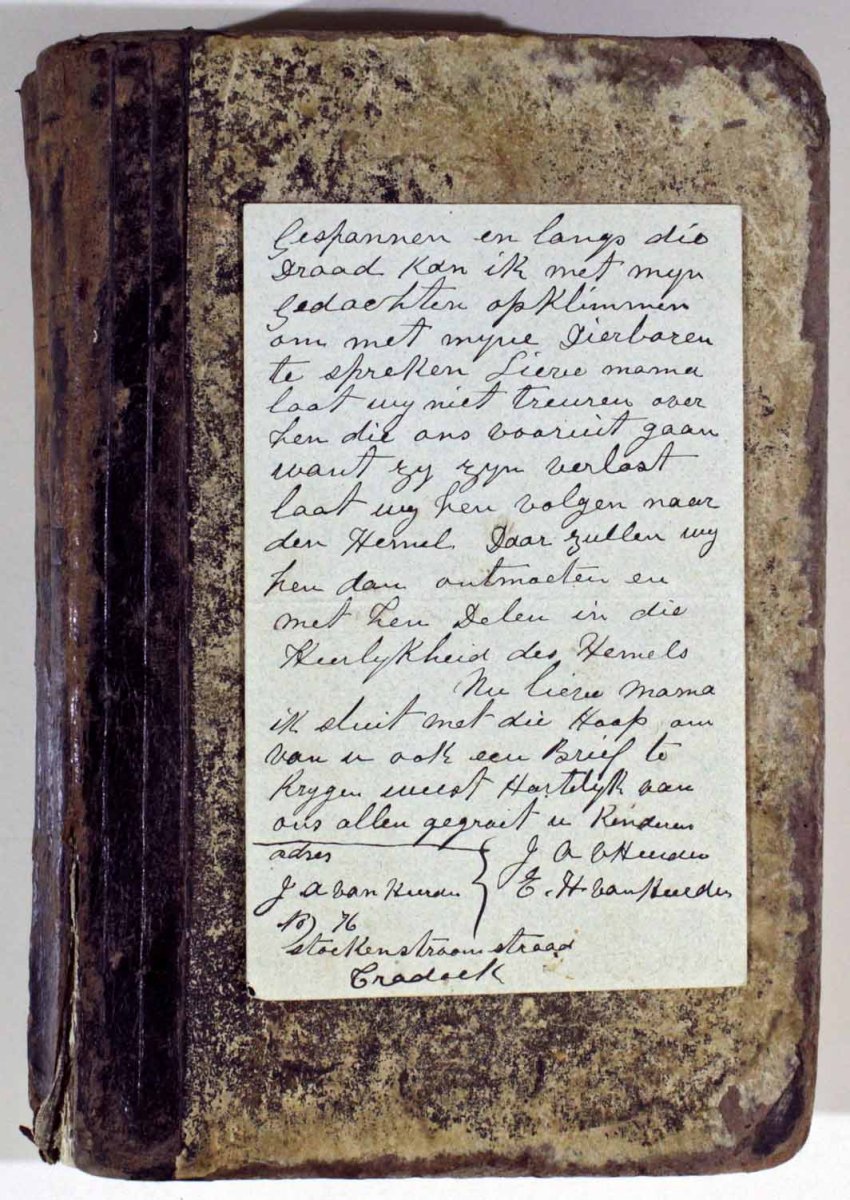 Gespannen en langs die
Draad kan ik met myn
Gedachten opklimmen
om met myne Dierbaren
te spreken Lieve mama
laat wy niet treuren over
hen die ons vooruit gaan
want zy zyn verlost
laat wy hen volgen naar
den Hemel Daar zullen wy
hen dan ontmoeten en
met hen Delen in die
Heerlykheid des Hemels
Nu lieve mama
ik sluit met die Hoop om
van u ook een Brief te
Krygen weest Hartelyk van
ons allen gegroet u Kinderen
adres
J A v Heerden
J A van Heerden
E. H. van Heerden
76
Stockenstroom straad
Cradock